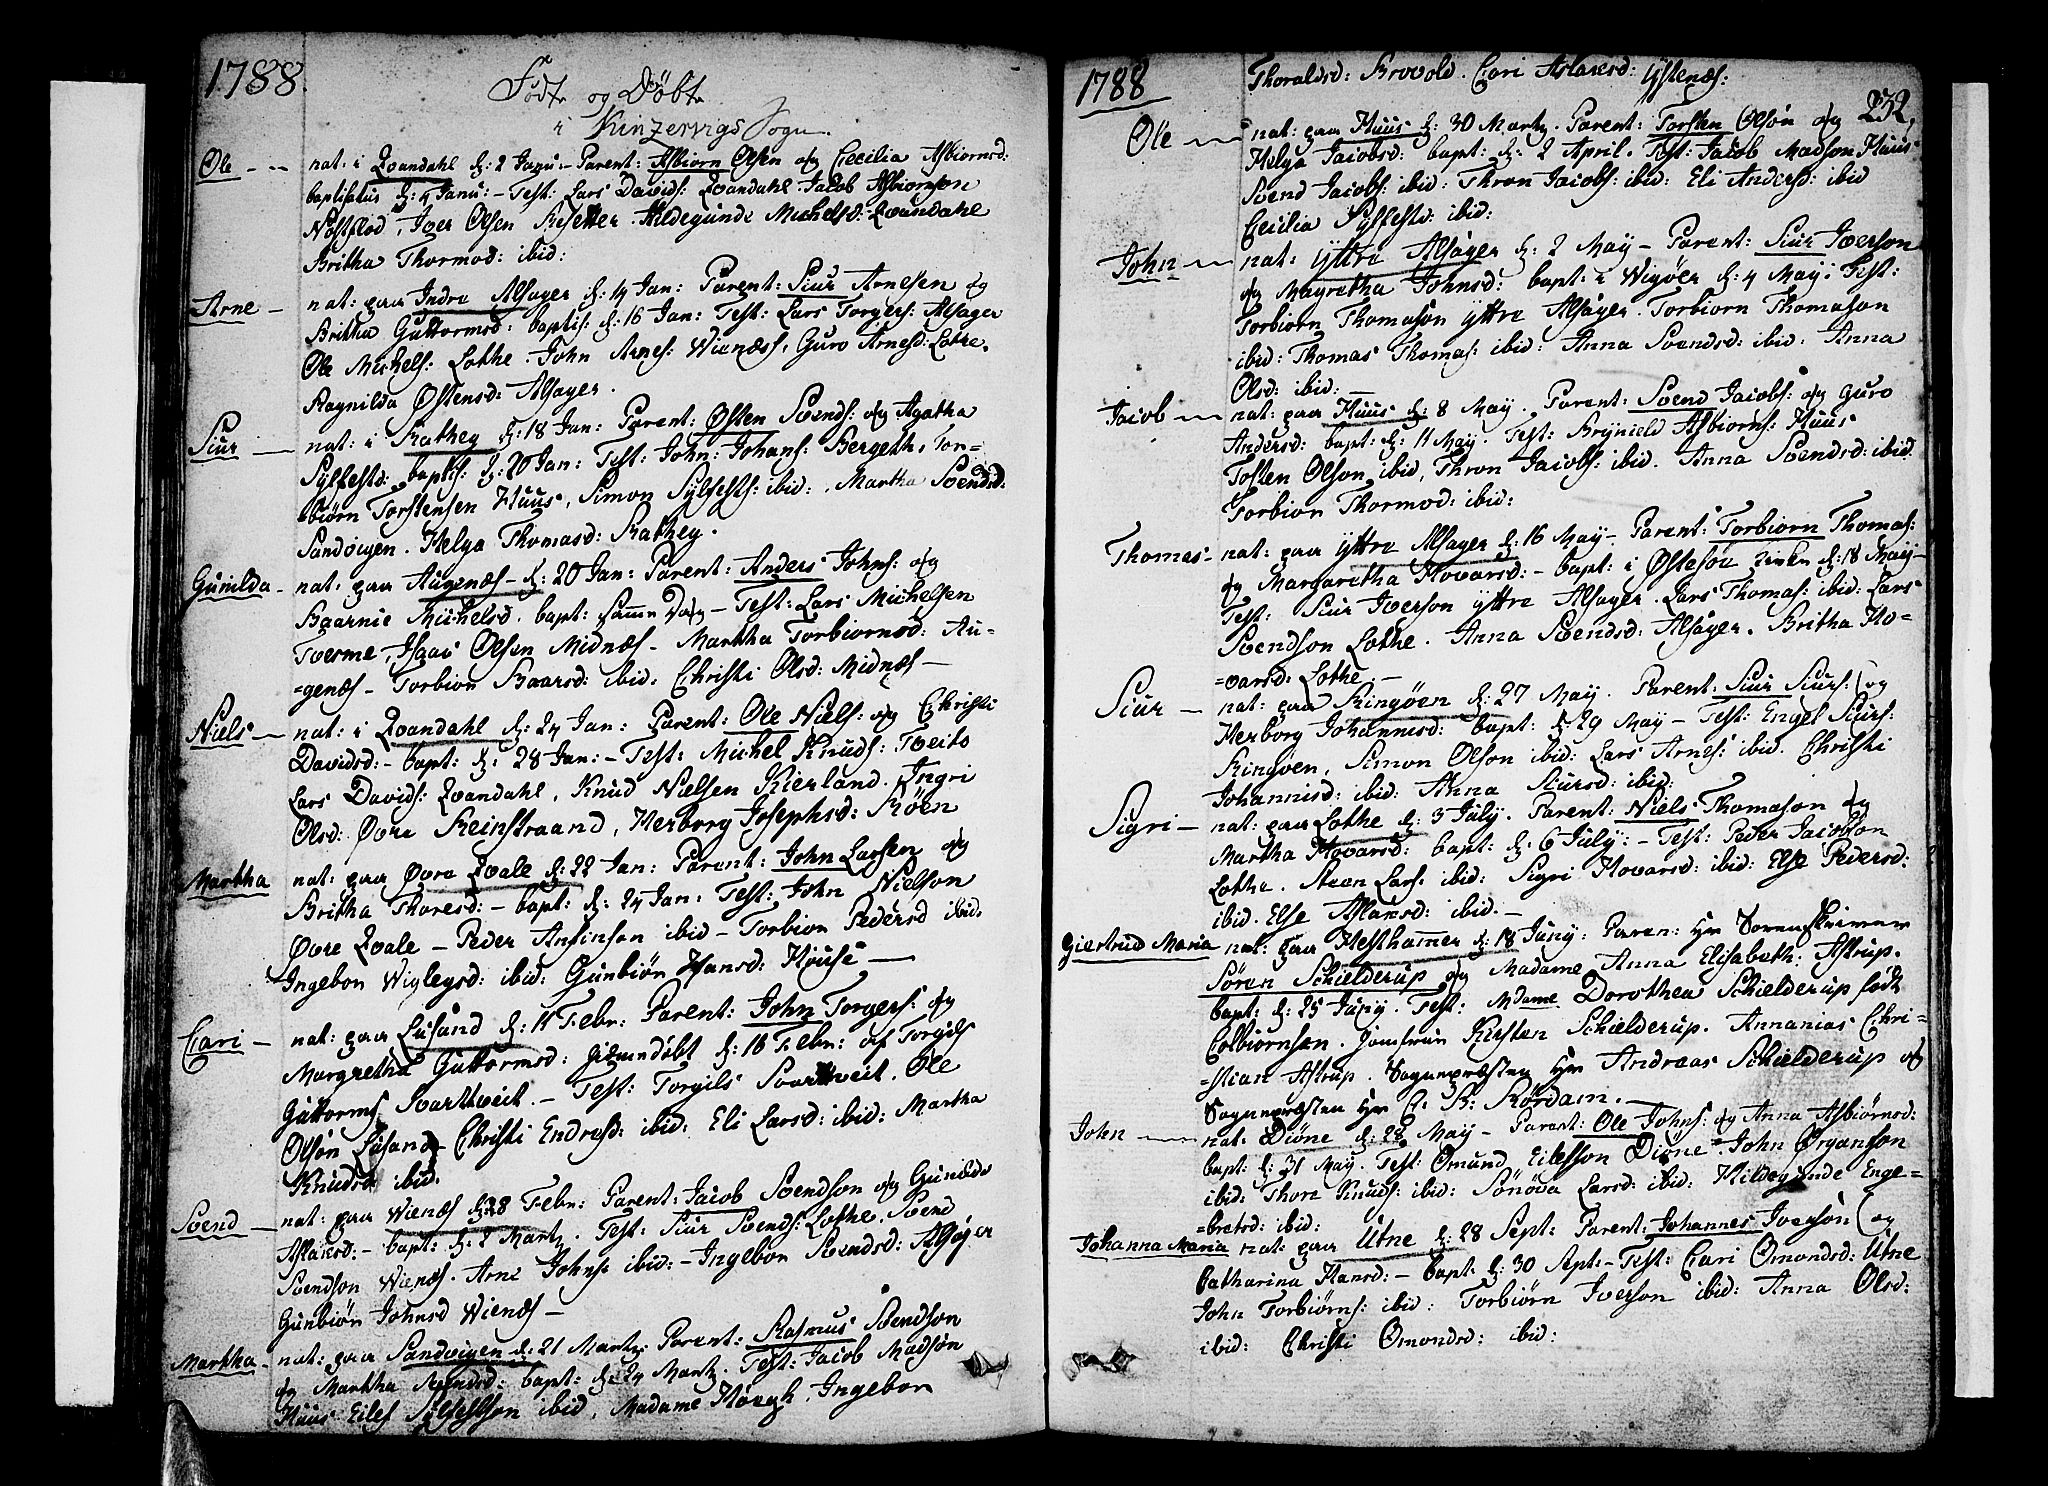 1788
Födte og Döbte
i Kinzervigs Sogn.
Ole -- nat: i Qvandahl d: 2 Janu: Parent: Asbiorn Olsen og Cecilia Asbiornsd:
baptisatus d: 4 Janu: - Test: Lars Davids: Qvandahl. Jacob Asbiornson
Nastflod, Iver Olsen Resetter. Hildegunde Michelsd: Qvandahl
Britha Thormod: ibid:
Arne - nat: paa Indre Alsager d: 14 Jan: Parent: Siur Arnesen og
Britha Guttormsd: baptis: d: 16 Jan: Test: Lars Torgers: Alsager
Ole Michels: Lothe. John Arnes: Wienæs, Guro Arnesd: Lothe.
Ragnilda Østensd: Alsager.
Siur - nat: i Rathey d: 18 Jan: Parent: Østen Svends: og Agatha
Sylfestd: baptis: d: 20 Jan: Test: John: Johans: Bergeth, Tor-
=biörn Torstensen Huus, Simon Sylfests: ibid:, Martha Svendsd:
Sandvigen. Helga Thomasd: Rathey.
Gunilda - nat: paa Augenæs - d: 20 Jan: Parent: Anders Johns: og
Baarnie Michelsd. bapt: samme Dag - Test: Lars Michelsen
Tverme, Isaac Olsen Midnæs - Martha Torbiornsd: Au-
=genæs - Torbior Baarsd: ibid: Christi Olsd: Midnæs -
Niels - nat: i Qvandahl d: 24 Jan: Parent: Ole Niels: og Christi
Davidsd: - bapt: d: 28 Jan: - Test: Michel Knuds: Tveito
Lars Davids: Qvandahl, Knud Nielsen Kierland. Ingri
Olsd: Øvre Reinstraand, Herborg Josephsd: Röen
Martha nat: paa Øvre Qvale d: 22 Jan: Parent: John Larsen og
Britha Thoresd: - bapt: d: 24 Jan: Test: John Nielson
Øvre Qvale - Peder Ansinson ibid - Torbior Pedersd ibid:
Ingebor Wiglegsd: ibid: Gunbiör Hansd: House -
Cari - nat: paa Lusand d: 11 Febr: Parent: John Torgers: og
Margretha Guttormsd: giemdöbt d: 16 Febr: af Torgils
Guttorms Svartveit. - Test: Torgils Svartveit. Ole
Olson Lusand Christi Endresd: ibid: Eli Larsd: ibid: Martha
Knudsd ibid.
Svend - nat: paa Wienæs d: 28 Febr: Parent: Jacob Svendson og Gunilde
Aslaksd: - bapt: d: 2 Martz. Test: Siur Svends: Lothe. Svend
Svendson Wienæs. Arne Johns: ibid: - Ingebor Svendsd: Alsager
Gunbiör Johnsd Wienæs -
Martha - nat: paa Sandvigen d: 21 Martz. Parent: Rasmus Svendson
og Martha Svendsd: bapt: d: 24 Martz. Test: Jacob Madson
Huus Eilef Sylfestson ibid, Madame Höegh, Ingebor
1788
Thoraldsd: Brovold. Cari Aslaksd: Ystenæs:
232,
Ole - nat: paa Huus d: 30 Martz. Parent: Torsten Olson og
Helga Jacobsd: bapt: d: 2 April. Test: Jacob Madson Huus
Svend Jacobs: ibid: Thron Jacobs: ibid: Eli Andersd: ibid
Cecilia Sylfestd: ibid:
John - nat: Yttre Alsager d: 2 May - Parent: Siur Iverson
og Margretha Johnsd: bapt: i Wigöer d: 4 May: Test:
Torbiorn Thomason Yttre Alsager. Torbiorn Thomason
ibid: Thomas Thomas: ibid: Anna Svendsd: ibid: Anna
Olsd: ibid: -
Jacob - nat: paa Huus d: 8 May. Parent: Svend Jacobs: og Guro
Andersd: bapt: d: 11 May. Test: Brynield Asbiorns: Huus
Tosten Olson ibid, Thron Jacobs: ibid. Anna Svendsd: ibid.
Torbior Thormod: ibid:
Thomas - nat: paa Yttre Alsager d: 16 May - Parent: Torbiorn Thomas:
og Margaretha Hovarsd: - bapt: i Østesöe Kirke d: 18 May -
Test: Siur Iverson Yttre Alsager. Lars Thomas: ibid: Lars
Svendson Lothe. Anna Svendsd: Alsager. Britha Ho-
=varsd: Lothe. -
Siur - nat: paa Ringöen d: 27 May. Parent: Siur Siurs: og
Herborg Johannisd: bapt: d: 29 May - Test: Engel Siurs:
Ringöen, Simon Olson ibid: Lars Arnes: ibid. Christi
Johannisd: ibid: Anna Siursd: ibid:
Sigri - nat: paa Lothe d: 3 July. Parent: Niels Thomason og
Martha Hovarsd: bapt: d: 6 July: - Test: Peder Jacobson
Lothe. Sven Lars: ibid: Sigri Hovarsd: ibid: Else Pedersd:
ibid. Else Aslaksd: ibid. -
Giertrud Maria nat: paa Hesthamer d: 18 Juny: Paren: Hr Sorenskriver
Sören Schielderup og Madame Anna Elisabeth: Astrup.
bapt: d: 25 Juny. Test: Mdame Dorothea Schielderup födt
Colbiörnsen. Jomfrue Kirsten Schielderup. Annanias Chri-
=stian Astrup. Sognepræsten Hr Andreas Schielderup og
Sognepræsten Hr C. B. Rördam. -
John - nat: Diöne d: 22 May - Parent: Ole Johns: og Anna Asbiörnsd:
bapt: d: 31 May. Test: Omund Eilefson Diöne - John Ørjanson
ibid: Thore Knuds: ibid: Sönöva Larsd: ibid: Hildegunde Enge-
=bretsd: ibid:
Johanna Maria nat: paa Utne d: 28 Sept: Parent: Johannes Iverson: og
Catharina Hansd: - bapt: d: 30 Sept: - Test: Cari Omondsd: Utne
John Torbiörns: ibid: Torbiörn Iverson ibid: Anna Olsd:
ibid: Christi Omondsd: ibid: